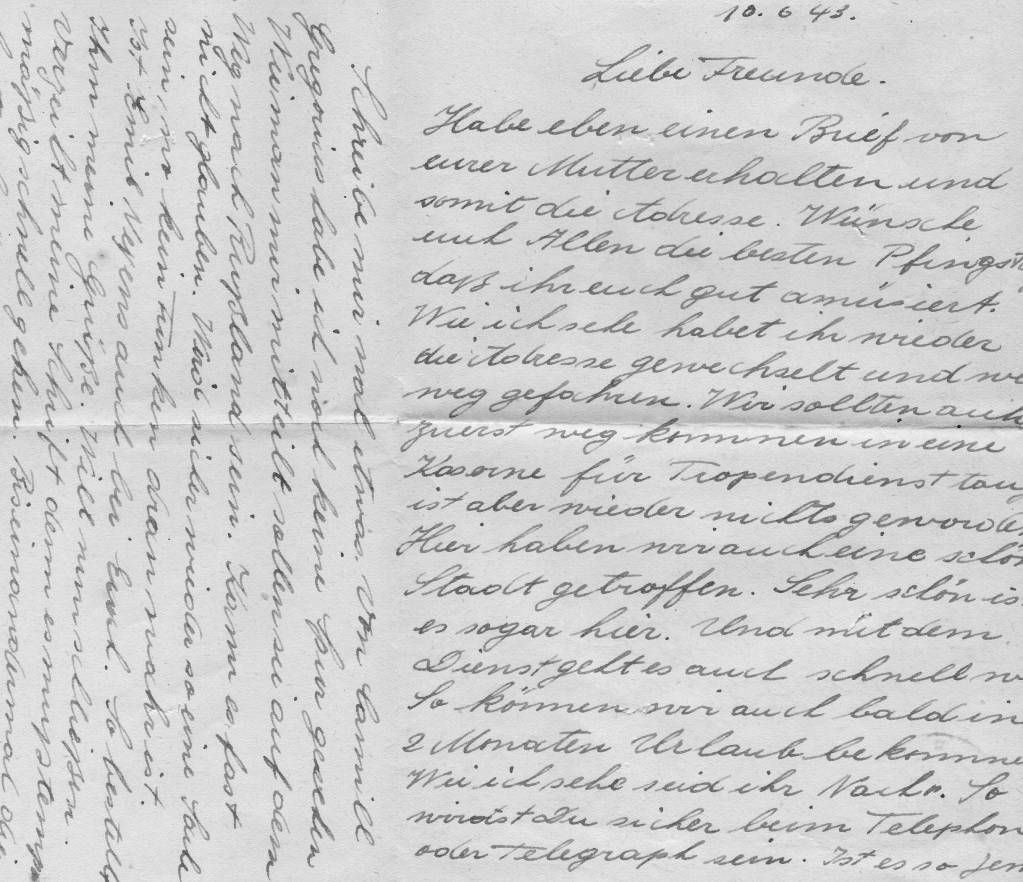 10. 6 43.
Liebe Freunde.
Habe eben einen Brief von
eurer Mutter erhalten und
somit die Adresse. Wünsche
euch Allen die besten Pfingst
daß ihr euch gut amüsiert.
Wie ich sehe habet ihr wieder
die Adresse gewechselt und we
weg gefahren. Wir sollten auch
zuerst weg kommen in eine
Kaserne für Tropendienst taug
ist aber wieder nichts geworden
Hier haben wir auch eine schön
Stadt getroffen. Sehr schön is
es sogar hier. Und mit dem
Dienst geht es auch schnell
So können wir auch bald in
2 Monaten Urlaub bekomme
Wie ich sehe seid ihr Nachr. So
wirdst Du sicher beim Telephon
oder Telegraph sein. Ist es so
Schreibe mir mal etwas. Von Camill
Gregorius habe ich noch keine gesehen
Wie man mir mitteilt sollen sie auf dem
Weg nach Rußland sein. Kann es fast
nicht glauben. Wird sicher wieder so eine
sein, wo kein Funken dran wahr ist.
Ist Emil auch bei Euch. So bestellt
Ihm meine Grüße. Will nun schließen.
Verzeiht meine Schrift denn es muß
mäßig schnell gehen.